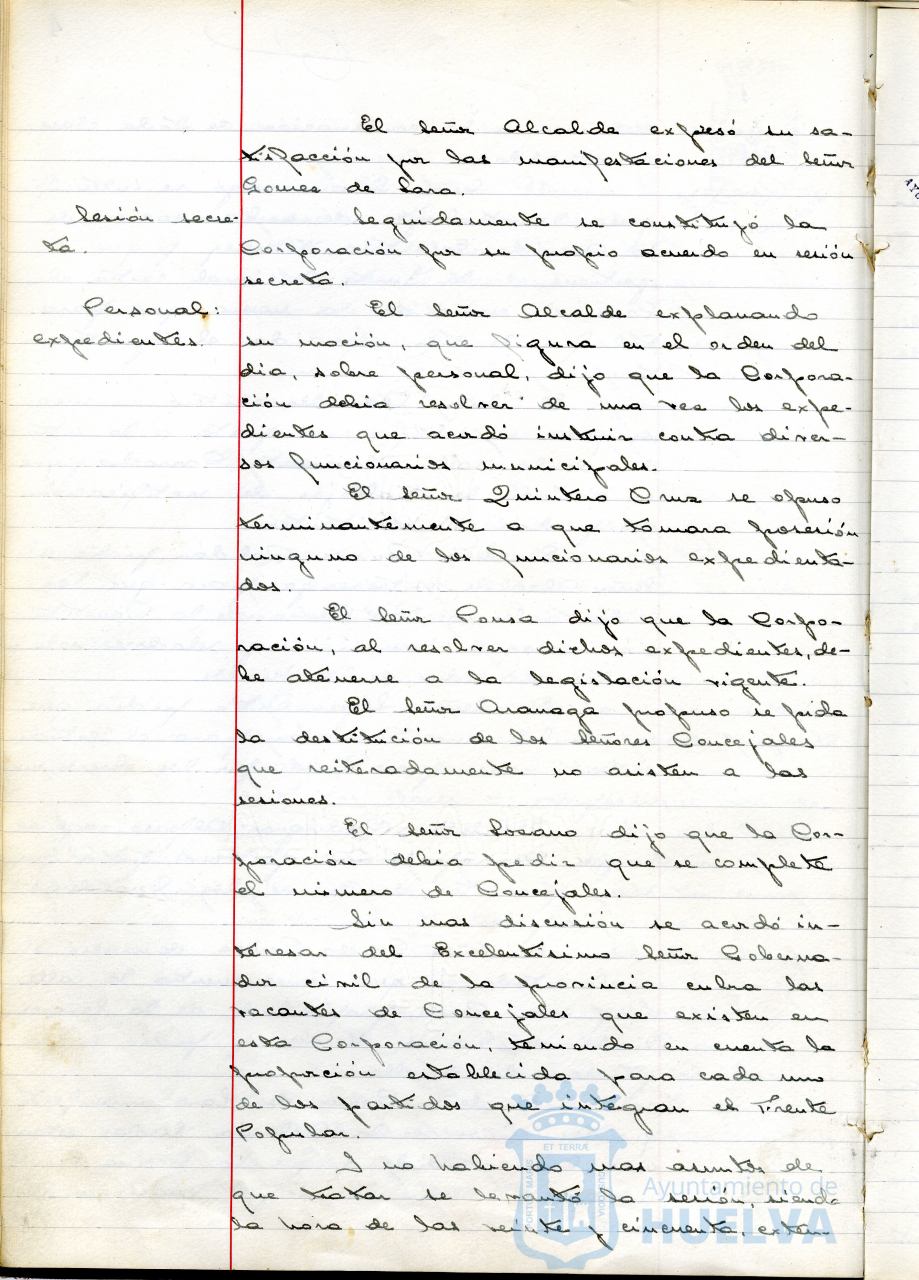 El Señor Alcalde expresó su sa-
tisfacción por las manifestaciones del Señor
Gomez de Lara.
Sesión secre-
ta.
Seguidamente se constituyó la
Corporación por su propio acuerdo en sesión
secreta.
Personal:
expedientes.
El Señor Alcalde explanando
su moción, que figura en el orden del
dia, sobre personal, dijo que la Corpora-
ción debia resolver de una vez los expe-
dientes que acordó instruir contra diver-
sos funcionarios municipales.
El Señor Quintero Cruz se opuso
terminantemente a que tomara posesión
ninguno de los funcionarios expedienta-
dos.
El Señor Ponsa dijo que la Corpo-
ración, al resolver dichos expedientes, de-
be atenerse a la legislación vigente.
El Señor Aranaga propuso se pida
la destitución de los Señores Concejales
que reiteradamente no asisten a las
sesiones.
El Señor Lozano dijo que la Cor-
poración debia pedir que se complete
el número de Concejales.
Sin mas discusión se acordó in-
teresar del Excelentisimo Señor Goberna-
dor civil de la provincia cubra las
vacantes de Concejales que existen en
esta Corporación, teniendo en cuenta la
proporción establecida para cada uno
de los partidos que integran el Frente
Popular.
Y no habiendo mas asuntos de
que tratar se levantó la sesión, siendo
la hora de las veinte y cincuenta, exten
ET TERRÆ
PORTUS MARIS
CUSTODIA
Ayuntamiento de
HUELVA